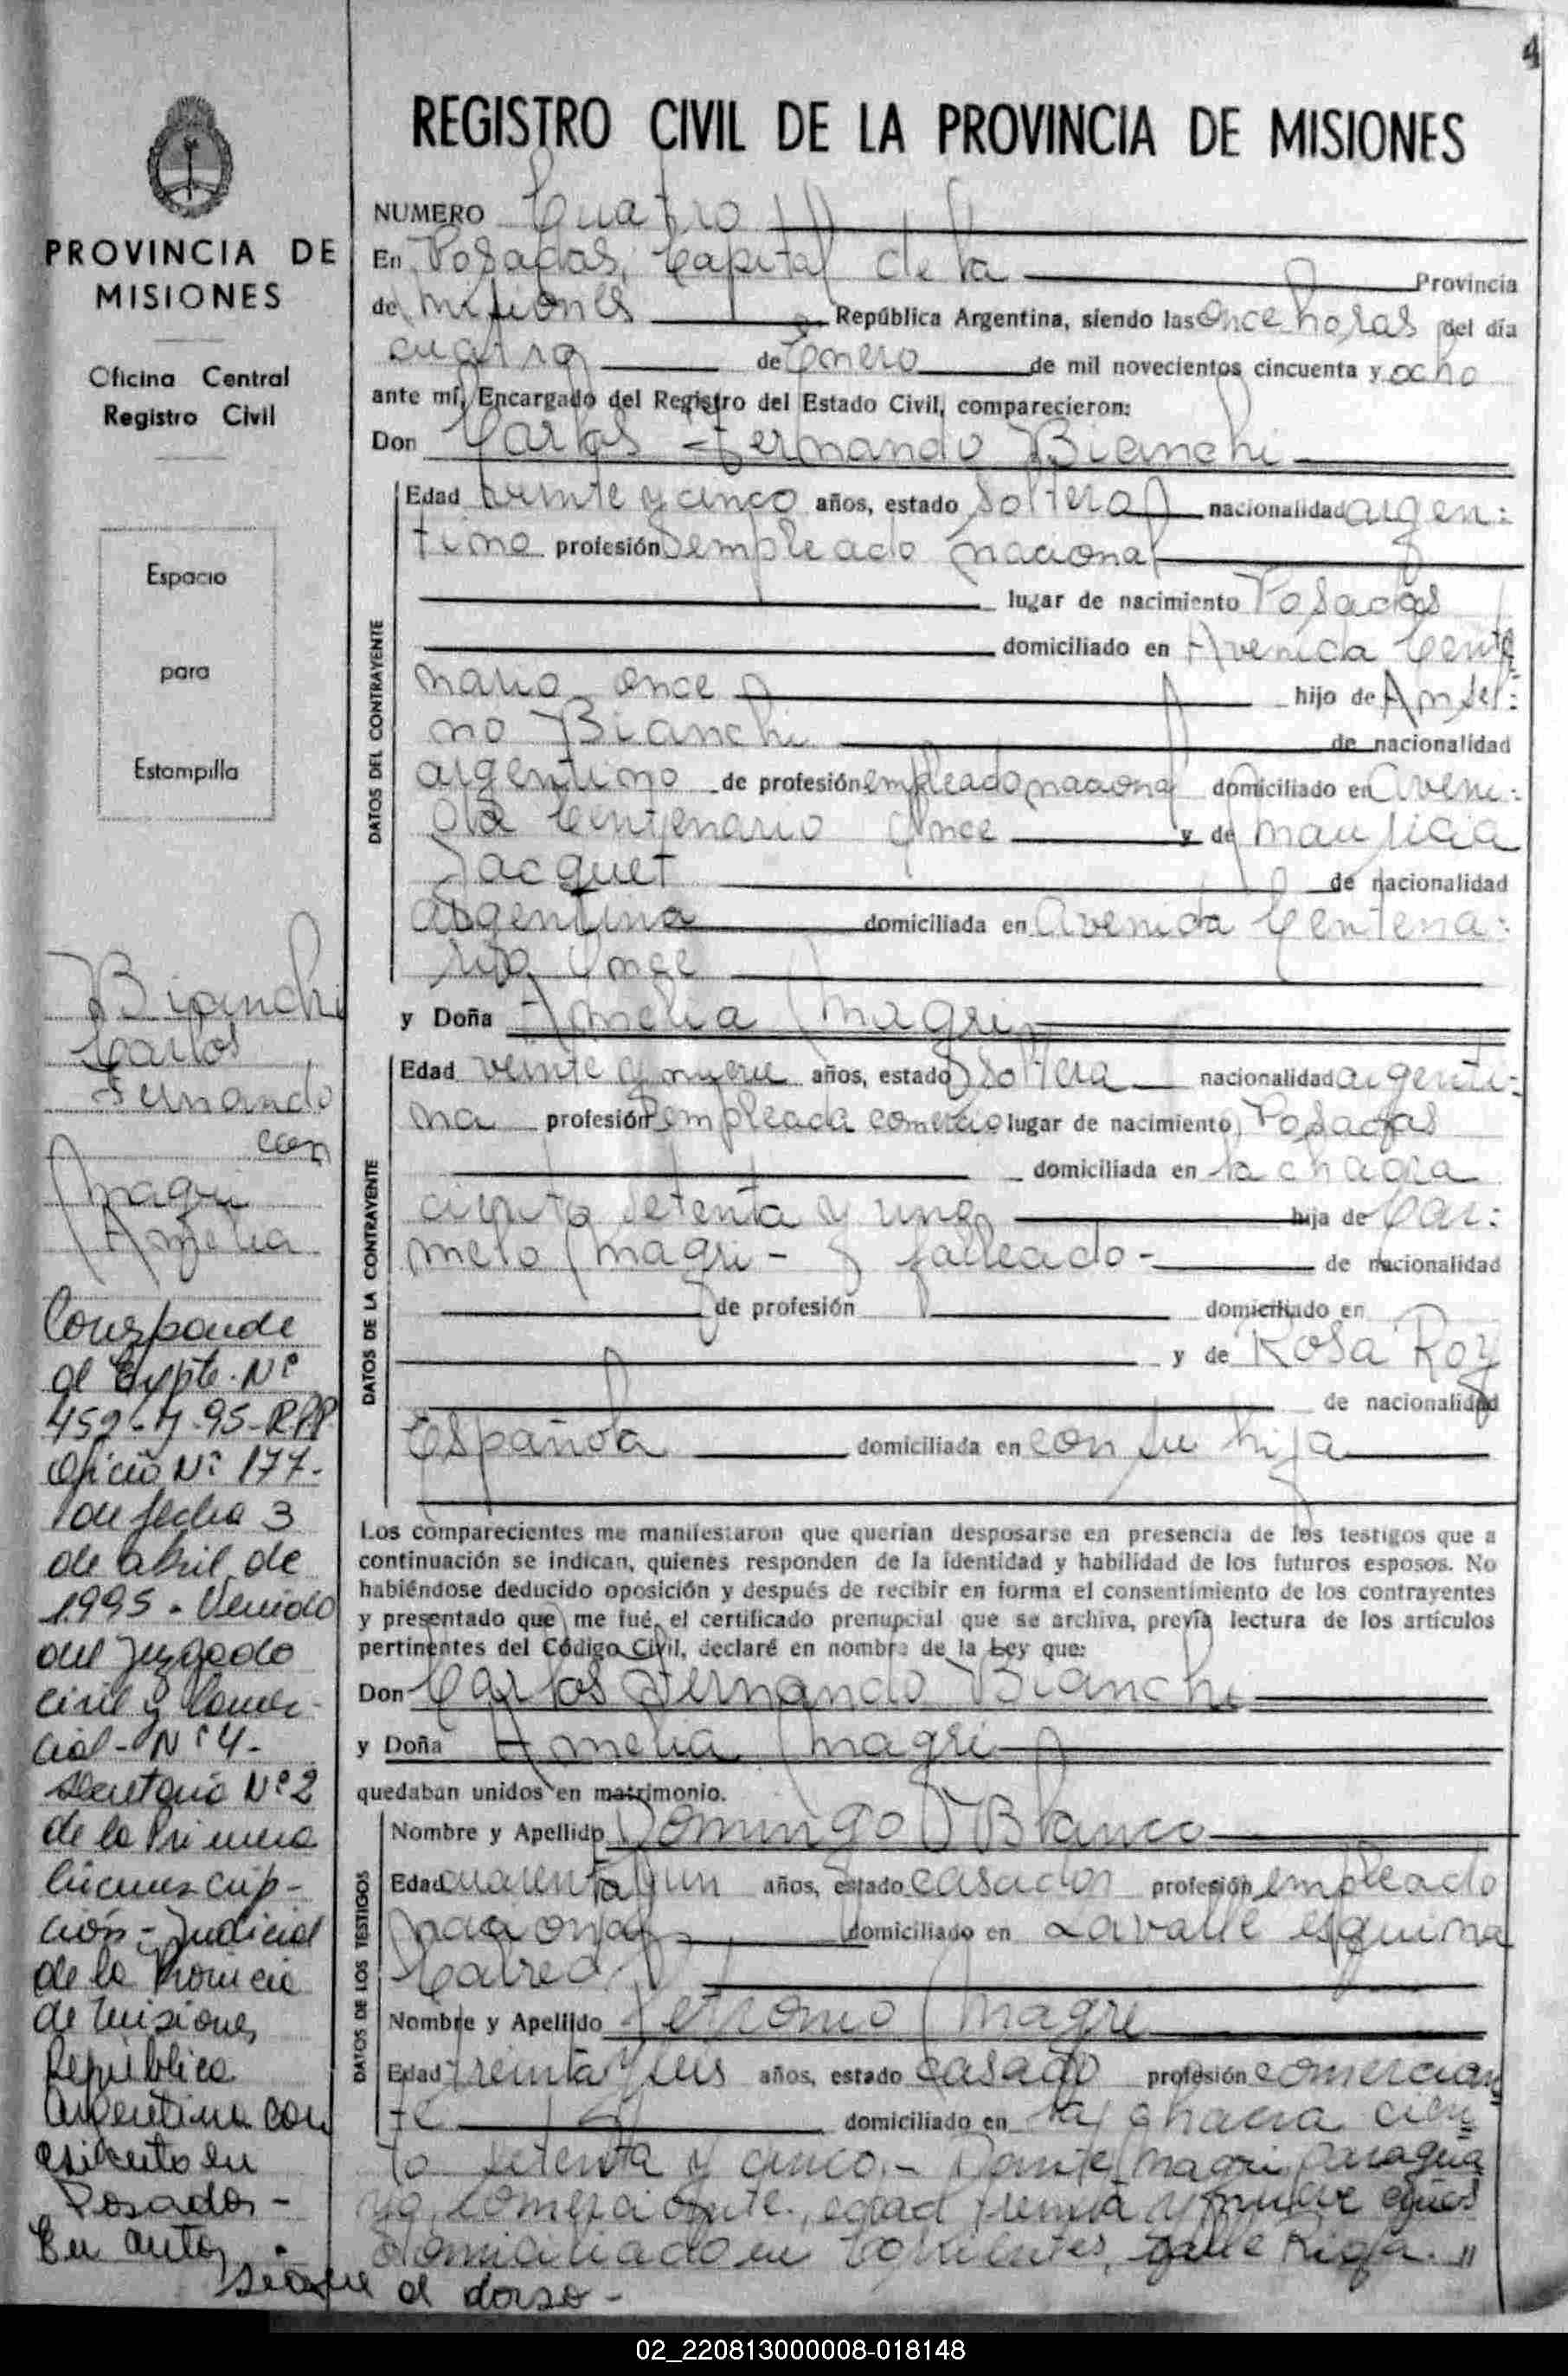 4
REGISTRO CIVIL DE LA PROVINCIA DE MISIONES
PROVINCIA DE
MISIONES
Oficina Central
Registro Civil
Espacio
para
Estampilla
Bianchi
Carlos
Fernando
con
Magri
Amelia
Corresponde
al Expte. Nº
452-M-95-RPP
Oficio Nº 177-
de fecha 3
de abril de
1995. Venido
del Juzgado
civil y Comer-
cial-Nº 4-
Secretaria Nº 2
de la Primera
Circunscrip-
ción-Judicial
de la Provincia
de Misiones
República
Argentina con
asiento en
Posadas-
En autos
sigue al dorso-
NUMERO Cuatro
En Posadas, Capital de la Provincia
de Misiones República Argentina, siendo las Once horas del día
cuatro de Enero de mil novecientos cincuenta y ocho
ante mí, Encargado del Registro del Estado Civil, comparecieron:
Don Carlos Fernando Bianchi
DATOS DEL CONTRAYENTE
Edad veinte y cinco años, estado soltero nacionalidad argen:
tino profesión empleado nacional
lugar de nacimiento Posadas
domiciliado en Avenida Cente
nario once hijo de
no Bianchi de nacionalidad
argentino de profesión empleado nacional domiciliado en Aveni:
da Centenario Once y de Mauricia
Jacquet de nacionalidad
argentina domiciliada en Avenida Centena:
rio Once
y Doña Amelia Magri
DATOS DE LA CONTRAYENTE
Edad veinte y nueve años, estado soltera nacionalidad argenti:
na profesión empleada comercio lugar de nacimiento Posadas
domiciliada en la chagra
ciento setenta y uno hija de Car:
melo Magri- fallecido- de nacionalidad
de profesión domiciliado en
y de Rosa Roy
de nacionalidad
Española domiciliada en con su hija
Los comparecientes me manifestaron que querían desposarse en presencia de los testigos que a
continuación se indican, quienes responden de la identidad y habilidad de los futuros esposos. No
habiéndose deducido oposición y después de recibir en forma el consentimiento de los contrayentes
y presentado que me fué, el certificado prenupcial que se archiva, previa lectura de los artículos
pertinentes del Código Civil, declaré en nombre de la Ley que:
Don Carlos Fernando Bianchi
y Doña Amelia Magri
quedaban unidos en matrimonio.
DATOS DE LOS TESTIGOS
Nombre y Apellido Domingo Blanco
Edad cuarenta y un años, estado casado profesión empleado
nacional domiciliado en Lavalle esquina
Nombre y Apellido Gerónimo Magri
Edad treinta y seis años, estado casado profesión comercian
te domiciliado en la chacra cien
to setenta y cinco.- Dante Magri, paragua
yo, comerciante, edad treinta y nueve años
domiciliado en Corrientes, calle Rioja. "
02_220813000008-018148